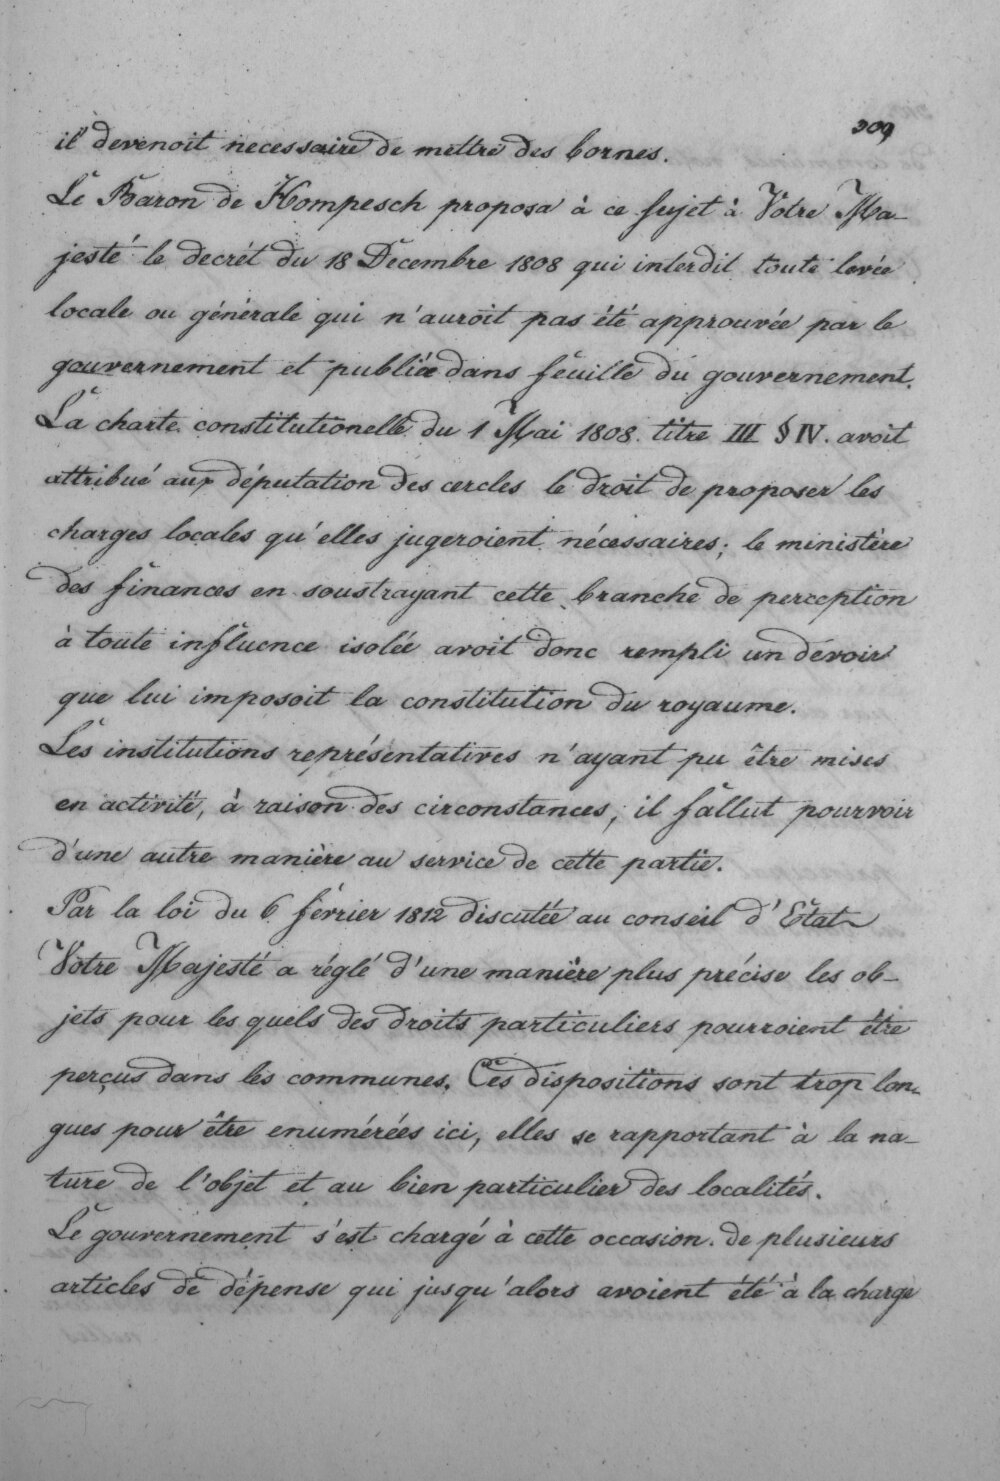 309
il devenoit necessaire de mettre des bornes.
Le Baron de Hompesch proposa à ce sujet à Votre Ma-
jesté le decrét du 18 Décembre 1808 qui interdit toute levée
locale ou générale qui n'auroit pas été approuvée par le
gouvernement et publiée dans feuille du gouvernement.
La charte constitutionelle du 1 Mai 1808. titre III § IV. avoit
attribué aux députation des cercles le droit de proposer les
charges locales qu'elles jugeroient nécessaires; le ministère
des finances en soustrayant cette branche de perception
à toute influence isolée avoit donc rempli un devoir
que lui imposoit la constitution du royaume.
Les institutions représentatives n'ayant pu être mises
en activité, à raison des circonstances, il fallut pourvoir
d'une autre manière au service de cette partie.
Par la loi du 6 février 1812 discutée au conseil d'Etat
Votre Majesté a réglé d'une manière plus précise les ob-
jets pour les quels des droits particuliers pourroient être
perçus dans les communes. Ces dispositions sont trop lon-
gues pour être enumérées ici, elles se rapportant à la na-
ture de l'objet et au bien particulier des localités.
Le gouvernement s'est chargé à cette occasion de plusieurs
articles de dépense qui jusqu'alors avoient été à la charge